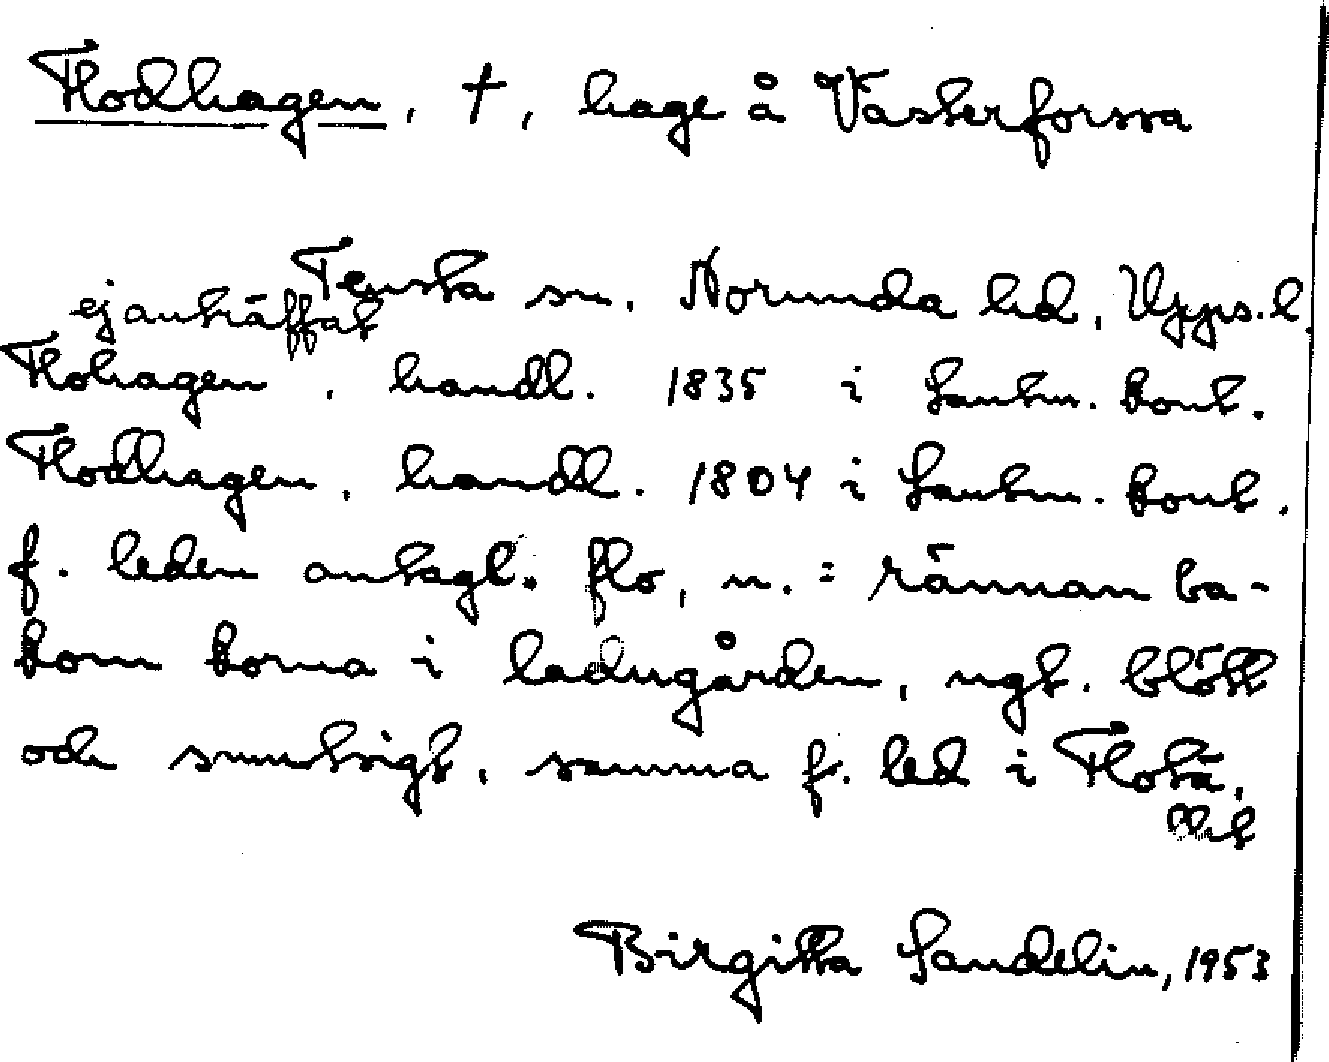 Flodhagen, †, hage å Västerforssa
Tensta sn. Norunda hd, Upps. l.
ej anträffat
Flohagen, handl. 1835 i Lantm. kont.
Flodhagen, handl. 1804 i Lantm. kont.
f. leden antagl. flo, n. = rännan ba-
kom korna i ladugården, ngt. blött
och sumtrigt, samma f. led i Flotä,
Birgitta Sandelin, 1953